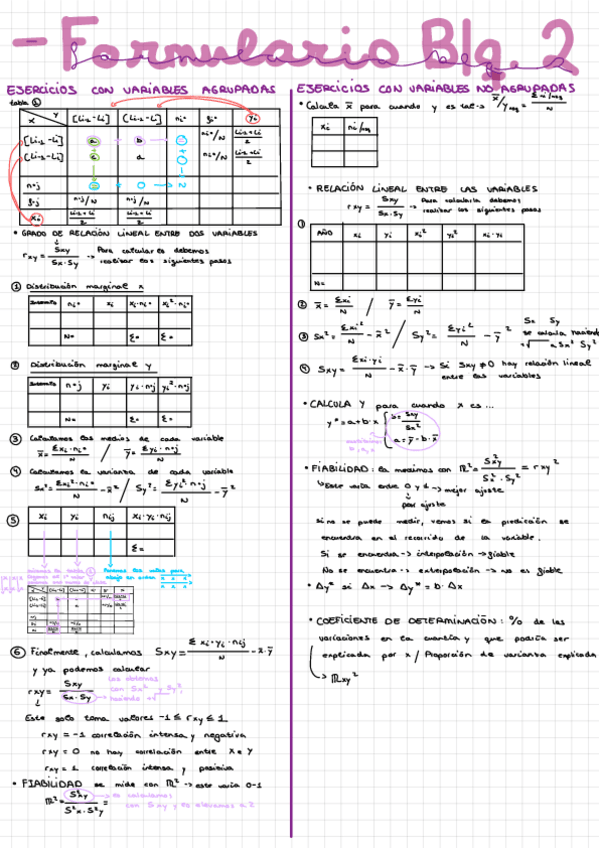 - Formulario Blq. 2
EJERCICIOS CON VARIABLES AGRUPADAS
tabla ①
X Y [Li-1 - Li] [Li-1 - Li] ni• fi• yi
[Li-1 - Li] a b ni•/N Li-1+Li/2
[Li-1 - Li] c d ni•/N Li-1+Li/2
n•j N
f•j n•j/N n•j/N
xi Li-1+Li/2 Li-1+Li/2
• GRADO DE RELACIÓN LINEAL ENTRE DOS VARIABLES
rxy = Sxy / Sx·Sy -> Para calcular es debemos
realizar los siguientes pasos
① Distribución marginal x
Intervalo ni• xi xi·ni• xi²·ni•
N= Σ= Σ=
② Distribución marginal y
Intervalo n•j yi yi·n•j yi²·n•j
N= Σ= Σ=
③ Calculamos las medias de cada variable
x̄ = Σxi·ni•/N / ȳ = Σyi·n•j/N
④ Calculamos la varianza de cada variable
Sx² = Σxi²·ni•/N - x̄² / Sy² = Σyi²·n•j/N - ȳ²
⑤ xi yi nij xi·yi·nij
Σ=
⑥ Finalmente, calculamos Sxy = Σxi·yi·nij/N - x̄·ȳ
y ya podemos calcular
rxy = Sxy / Sx·Sy
las obtenemos
con Sx² y Sy²,
haciendo √
Este solo toma valores -1 ≤ rxy ≤ 1
rxy = -1 correlación intensa y negativa
rxy = 0 no hay correlación entre X e Y
rxy = 1 correlación intensa y positiva
• FIABILIDAD se mide con R² -> este varía 0-1
R² = S²xy / S²x·S²y =
-> es calculamos
con Sxy y es elevamos x 2
EJERCICIOS CON VARIABLES NO AGRUPADAS
• Calcula x̄ para cuando y es tal ->
xi
• RELACIÓN LINEAL ENTRE LAS VARIABLES
rxy = Sxy / Sx·Sy -> Para calcularla debemos
realizar los siguientes pasos
①
AÑO xi yi xi² yi² xi·yi
N=
② x̄ = Σxi/N / ȳ = Σyi/N
③ Sx² = Σxi²/N - x̄² / Sy² = Σyi²/N - ȳ²
Sx Sy
se calcula haciendo
√ a Sx² Sy²
④ Sxy = Σxi·yi/N - x̄·ȳ -> Si Sxy ≠ 0 hay relación lineal
entre las variables
• CALCULA Y para cuando x es ...
y* = a+b·x { b = Sxy/Sx²
a = ȳ - b·x̄
• FIABILIDAD: la medimos con R² = S²xy / Sx²·Sy² = rxy²
Este varía entre 0 y 1 -> mejor ajuste
peor ajuste
si no se puede medir, vemos si la predicción se
encuentra en el recorrido de la variable.
Si se encuentra -> interpolación -> fiable
No se encuentra -> extrapolación -> no es fiable
• Δy* si Δx -> Δy* = b·Δx
• COEFICIENTE DE DETERMINACIÓN: % de las
variaciones en la cuantía y que podría ser
explicada por x / Proporción de varianza explicada
-> Rxy²